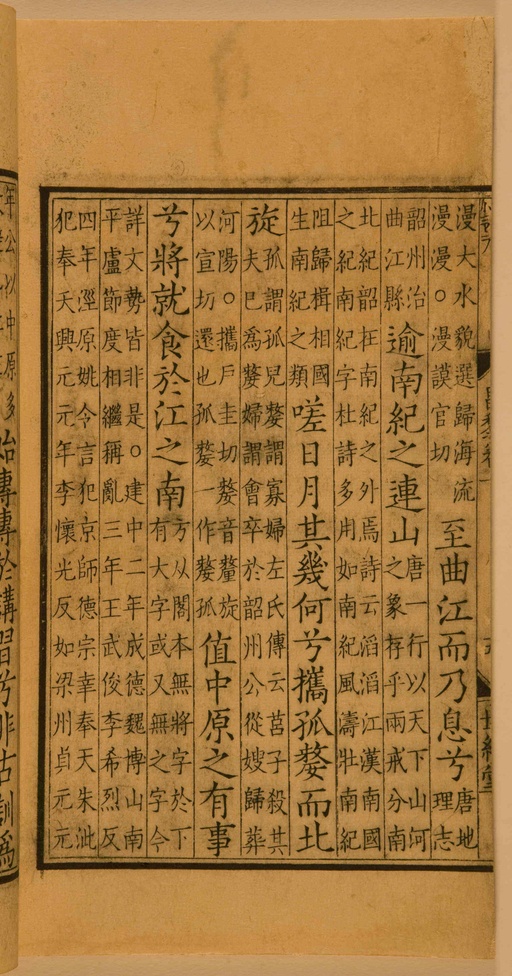 漫大水貌選歸海流漫漫○漫謨官切至曲江而乃息兮唐地理志
韶州治曲江縣逾南紀之連山唐一行以天下山河之象存乎兩戒分南
北紀韶在南紀之外焉詩云滔滔江漢南國之紀南紀字杜詩多用如南紀風濤壯南紀
阻歸楫相國生南紀之類嗟日月其幾何兮攜孤嫠而北
旋孤謂孤兒嫠謂寡婦左氏傳云莒子殺其夫巳爲嫠婦謂會卒於韶州公從嫂歸葬
河陽○攜戶圭切嫠音釐旋以宣切還也孤嫠一作嫠孤值中原之有事
兮將就食於江之南方从閣本無將字於下有大字或又無之字今
詳文勢皆非是○建中二年成德魏博山南平盧節度相繼稱亂三年王武俊李希烈反
四年涇原姚令言犯京師德宗幸奉天朱泚犯奉天興元元年李懷光反如梁州貞元元
年公以中原多始專專於講習兮非古訓爲